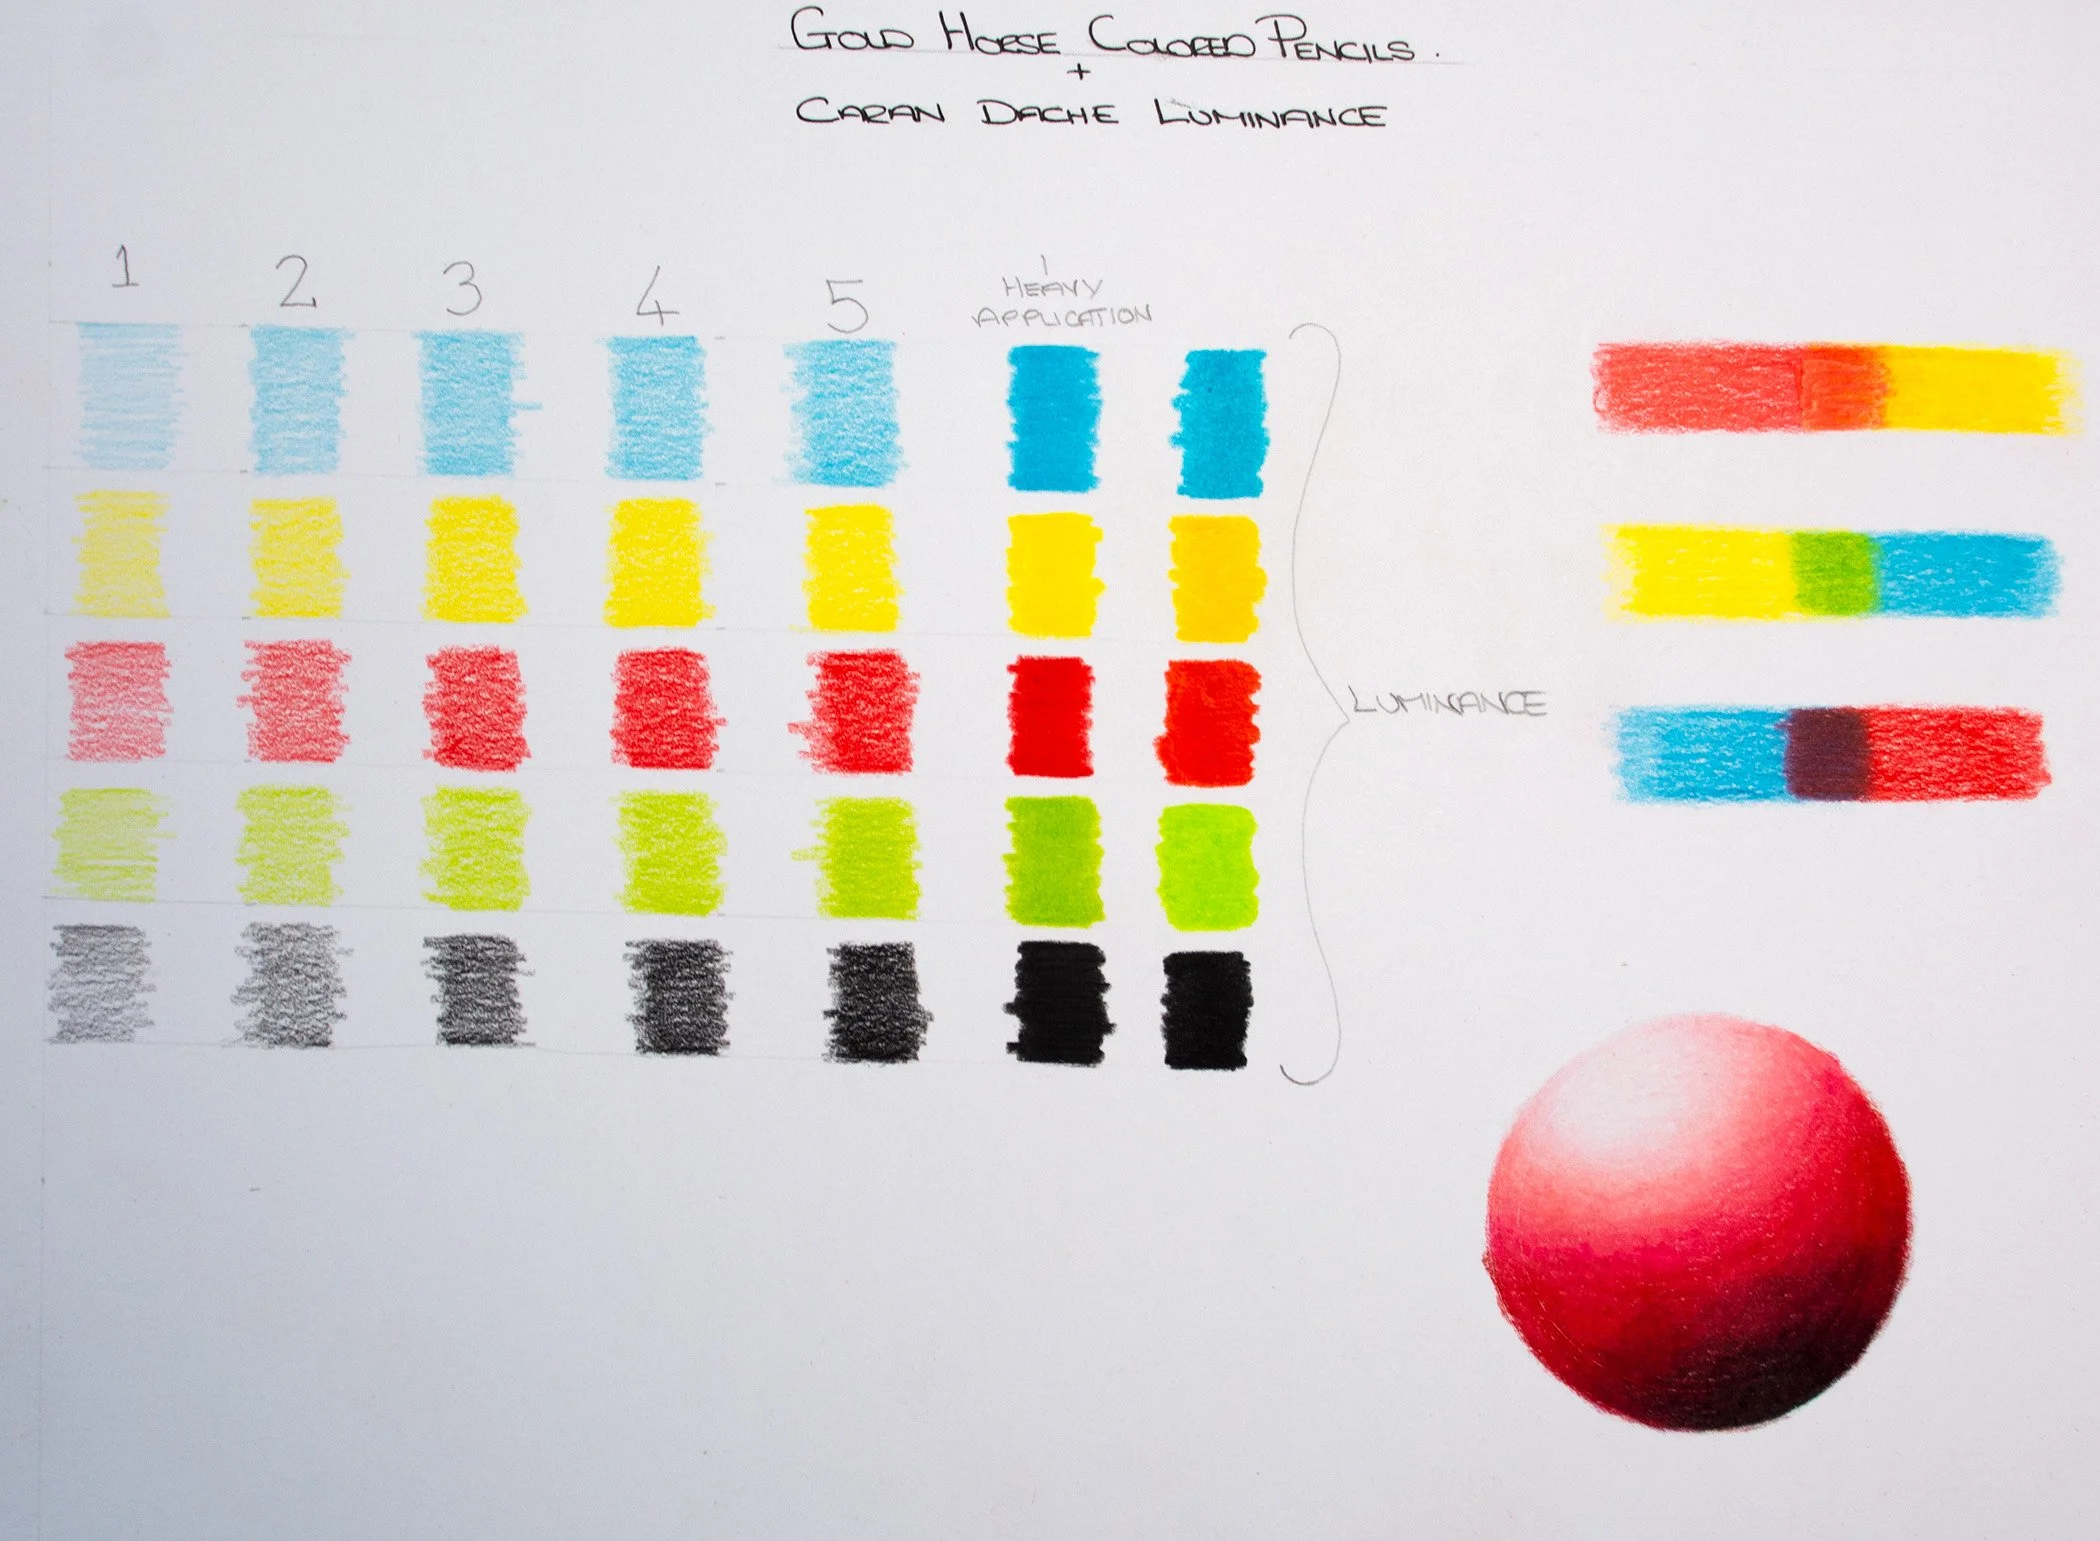 GOLD HORSE COLORED PENCILS.
+
CARAN DACHE LUMINANCE
1 2 3 4 5
HEAVY
APPLICATION
LUMINANCE